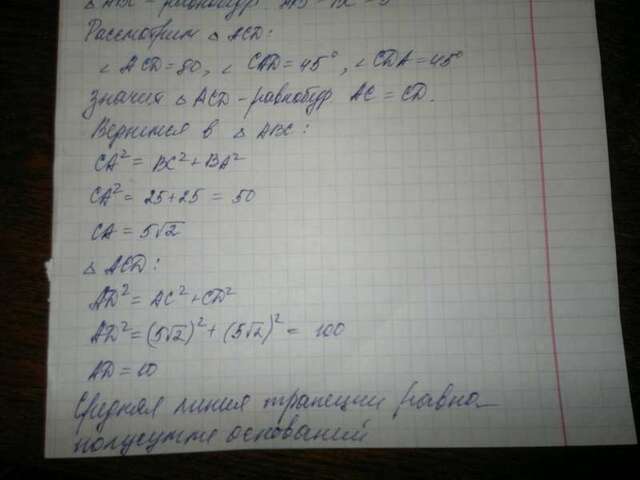 △ ABC - равнобедр. AB = BC = 5
Рассмотрим △ ACD:
∠ ACD = 90, ∠ CAD = 45°, ∠ CDA = 45°
значит △ ACD - равнобедр AC = CD.
Вернемся в △ ABC:
CA² = BC² + BA²
CA² = 25 + 25 = 50
CA = 5√2
△ ACD:
AD² = AC² + CD²
AD² = (5√2)² + (5√2)² = 100
AD = 10
Средняя линия трапеции равна
полусумме оснований